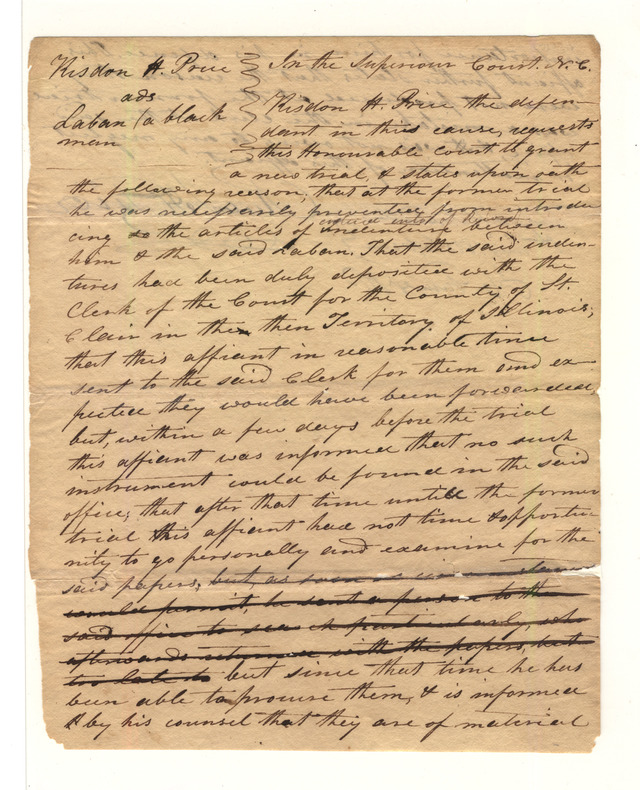 Kisdon H. Price
ads
Laban (a black
man
In the Superiour Court. N. C.
Kisdon H. Price the defen-
dant in this cause, requests
this Honourable Court to grant
a new trial, & states upon oath
the following reason; that at the former trial
he was necessarily prevented from introdu-
cing to the articles of Indenture between
him & the said Laban. That the said inden-
tures had been duly deposited with the
Clerk of the Court for the County of St.
Clair in the then Territory of Illinois;
that this affiant in reasonable time
sent to the said Clerk for them and ex-
pected they would have been forwarded
but, within a few days before the trial
this affiant was informed that no such
instrument could be found in the said
office; that after that time untill the former
trial this affiant had not time & opportu-
nity to go personally and examine for the
said papers, but, as soon as
would permit, he sent a person to the
said office to search particularly, who
afterwards return with the papers, but
too late to but since that time he has
been able to procure them, & is informed
by his counsel that they are of material